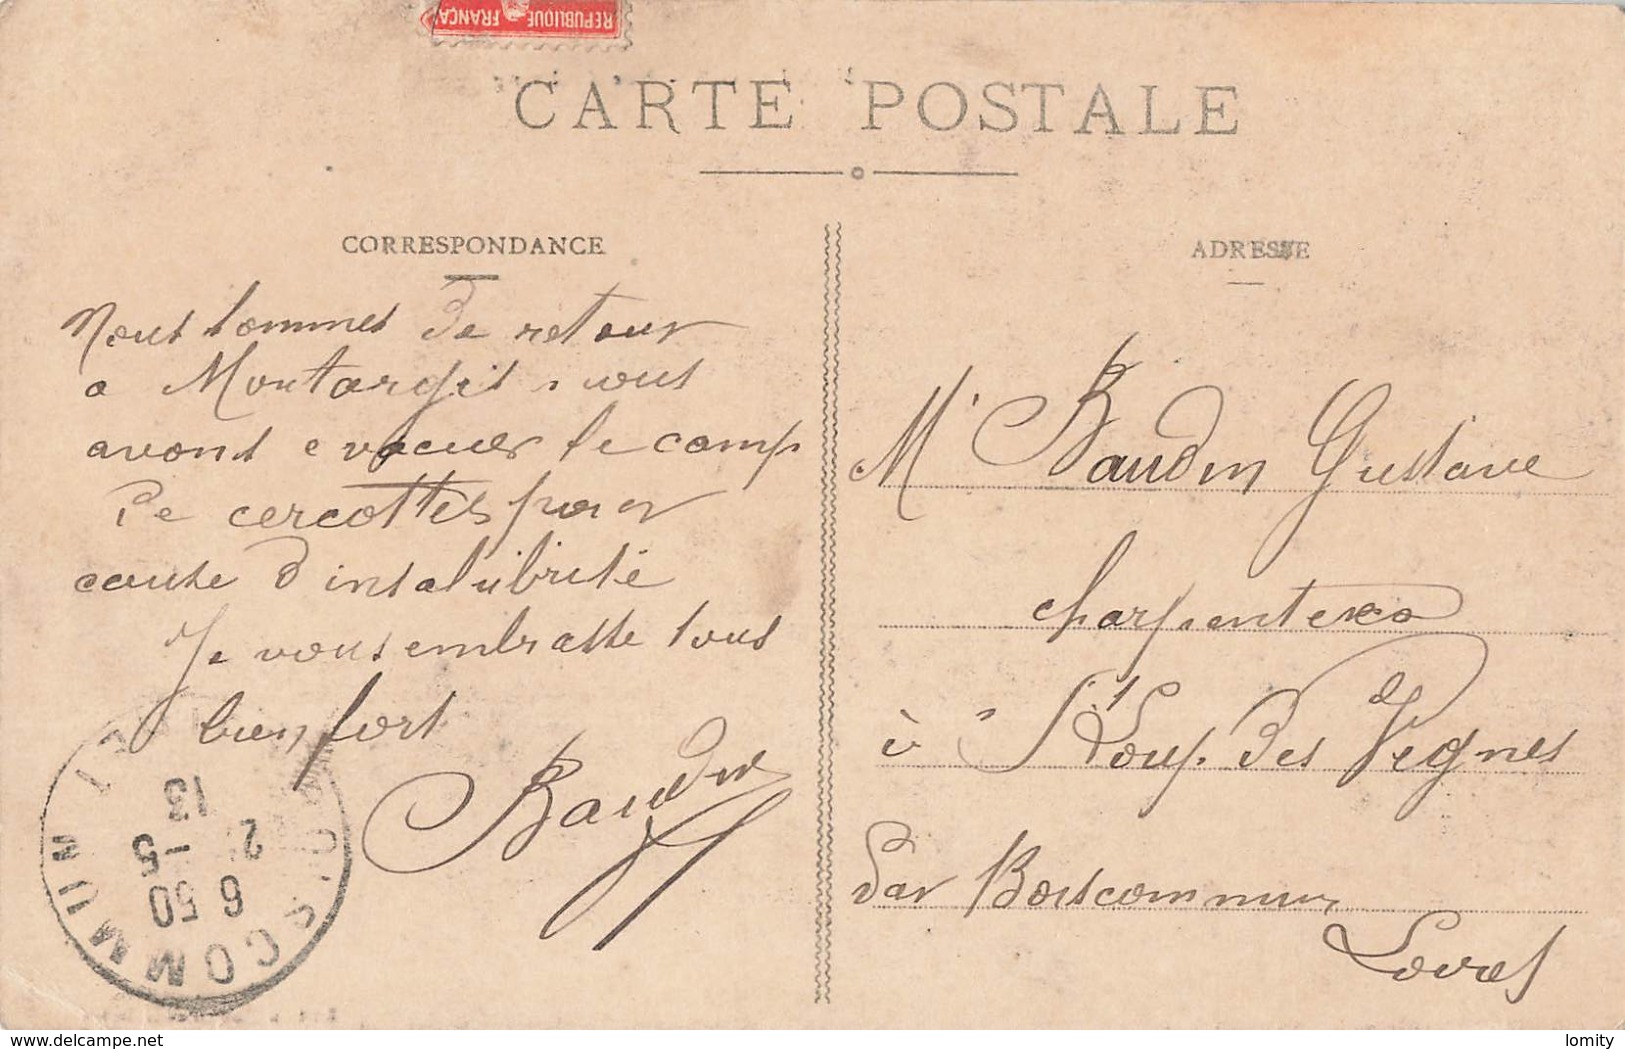 REPUBLIQUE FRANCA
CARTE POSTALE
CORRESPONDANCE
Nous sommes de retour
a Montargis nous
avons evacuer le camp
de cercottes pour
cause d'insalubrité
Je vous embrasse tous
bien fort
Baudin
BOISCOMMUN
6 50
2 - 5
13
ADRESSE
Mr Baudin Gustave
charpentier
à St Loup des Vignes
par Boiscommun
Loiret
lomity